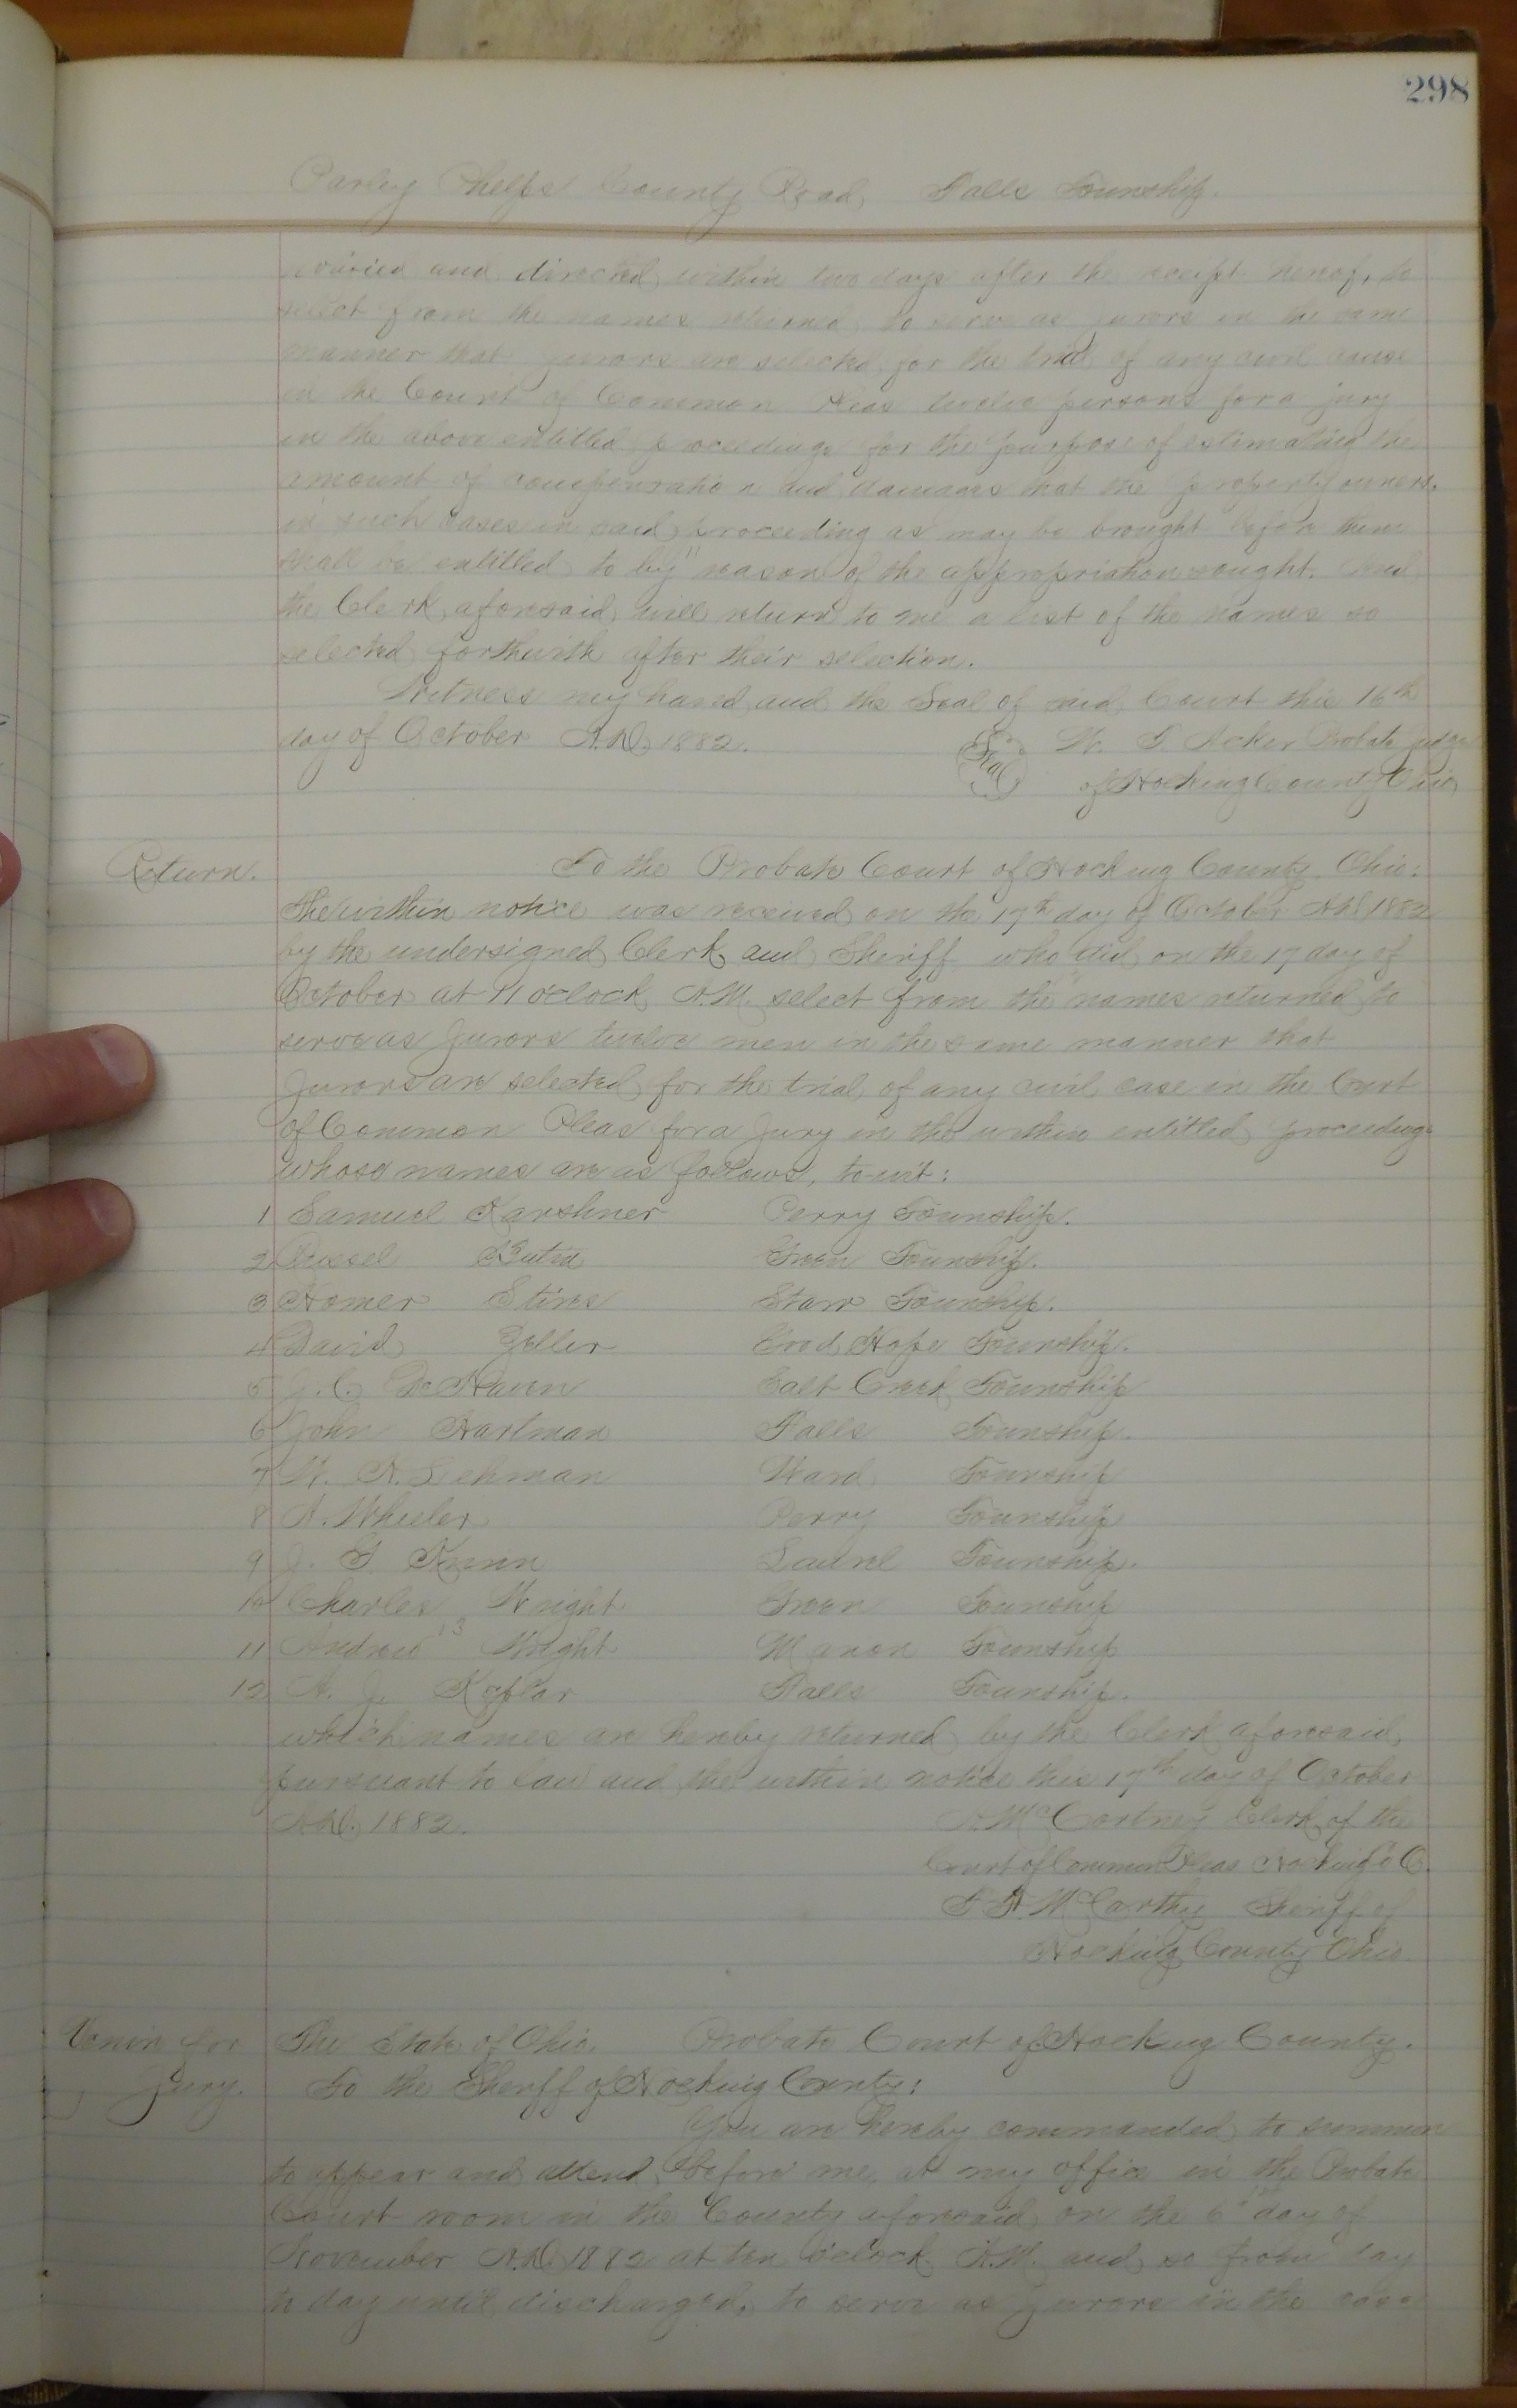 298
Parley Phelps County Road, Falls Township.
and directed within two days after the receipt hereof, to
select from the names returned to serve as jurors in the same
manner that jurors are selected for the trial of any civil cause
in the Court of Common Pleas twelve persons for a jury
in the above entitled proceedings for the purpose of estimating the
amount of compensation and damages that the property owners,
in such cases in said proceeding as may be brought before them
shall be entitled to by reason of the appropriation sought. And
the Clerk aforesaid will return to me a list of the names so
selected forthwith after their selection.
Witness my hand and the Seal of said Court this 16th
day of October A.D. 1882.
Seal
W. T. Acker Probate Judge
of Hocking County Ohio
Return.
To the Probate Court of Hocking County Ohio:
The within notice was received on the 17th day of October A.D. 1882
by the undersigned Clerk and Sheriff who did on the 17 day of
October at 11 oclock A.M. select from the names returned to
serve as Jurors twelve men in the same manner that
Jurors are selected for the trial of any civil case in the Court
of Common Pleas for a Jury in the within entitled proceedings
whose names are as follows, to-wit:
1 Samuel Karshner Perry Township.
2 Green Township.
3 Homer Stires Starr Township.
4 David Zeller Good Hope Township.
5 J. C. DeHaven Salt Creek Township
6 John Hartman Falls Township.
7 W. A. Lehman Ward Township
8 A. Wheeler Perry Township
9 J. G. Laurel Township.
10 Charles Wright Green Township
11 Andrew Wright Marion Township
12 A. J. Keplar Falls Township.
which names are hereby returned by the Clerk aforesaid,
pursuant to law and the within notice this 17th day of October
A.D. 1882.
McCartney Clerk of the
Court of Common Pleas Hocking Co O.
McCarthy Sheriff of
Hocking County Ohio
Venire for
Jury.
The State of Ohio. Probate Court of Hocking County.
To the Sheriff of Hocking County:
You are hereby commanded to summon
to appear and attend before me, at my office in the Probate
Court room in the County aforesaid on the 6th day of
November A.D. 1882 at ten o'clock A.M. and so from day
to day until discharged, to serve as jurors in the case